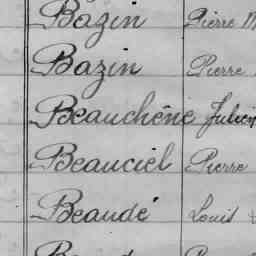 Bazin Pierre M
Bazin Pierre
Beauchêne Julien
Beauciel Pierre
Beaudé Louis